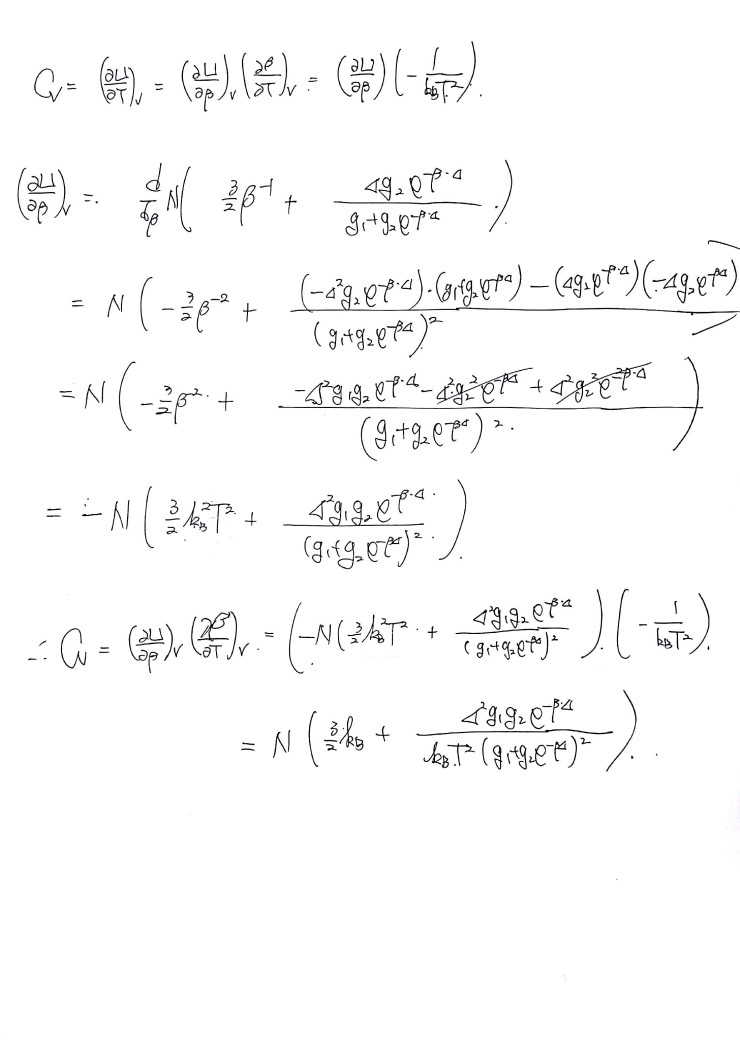 Cv = (∂U/∂T)_V = (∂U/∂β)_V (∂β/∂T)_V = (∂U/∂β)(-1/(k_B T²)).
(∂U/∂β)_V = d/dβ N( 3/2 β^-1 + Δg₂e^(-β·Δ)/(g₁+g₂e^(-β·Δ)) )
= N( -3/2 β^-2 + ((-Δ²g₂e^(-β·Δ))·(g₁+g₂e^(-βΔ)) - (Δg₂e^(-β·Δ))(-Δg₂e^(-βΔ)))/(g₁+g₂e^(-βΔ))² )
= N( -3/2 β^-2 + (-Δ²g₁g₂e^(-β·Δ) - Δ²g₂²e^(-2βΔ) + Δ²g₂²e^(-2β·Δ))/(g₁+g₂e^(-βΔ))² )
= -N( 3/2 k_B²T² + Δ²g₁g₂e^(-β·Δ)/(g₁+g₂e^(-βΔ))² )
∴ Cv = (∂U/∂β)_V (∂β/∂T)_V = (-N(3/2 k_B²T² + Δ²g₁g₂e^(-β·Δ)/(g₁+g₂e^(-βΔ))²)·(-1/(k_B T²)).
= N( 3/2 k_B + Δ²g₁g₂e^(-β·Δ)/(k_B T²(g₁+g₂e^(-βΔ))²) ).